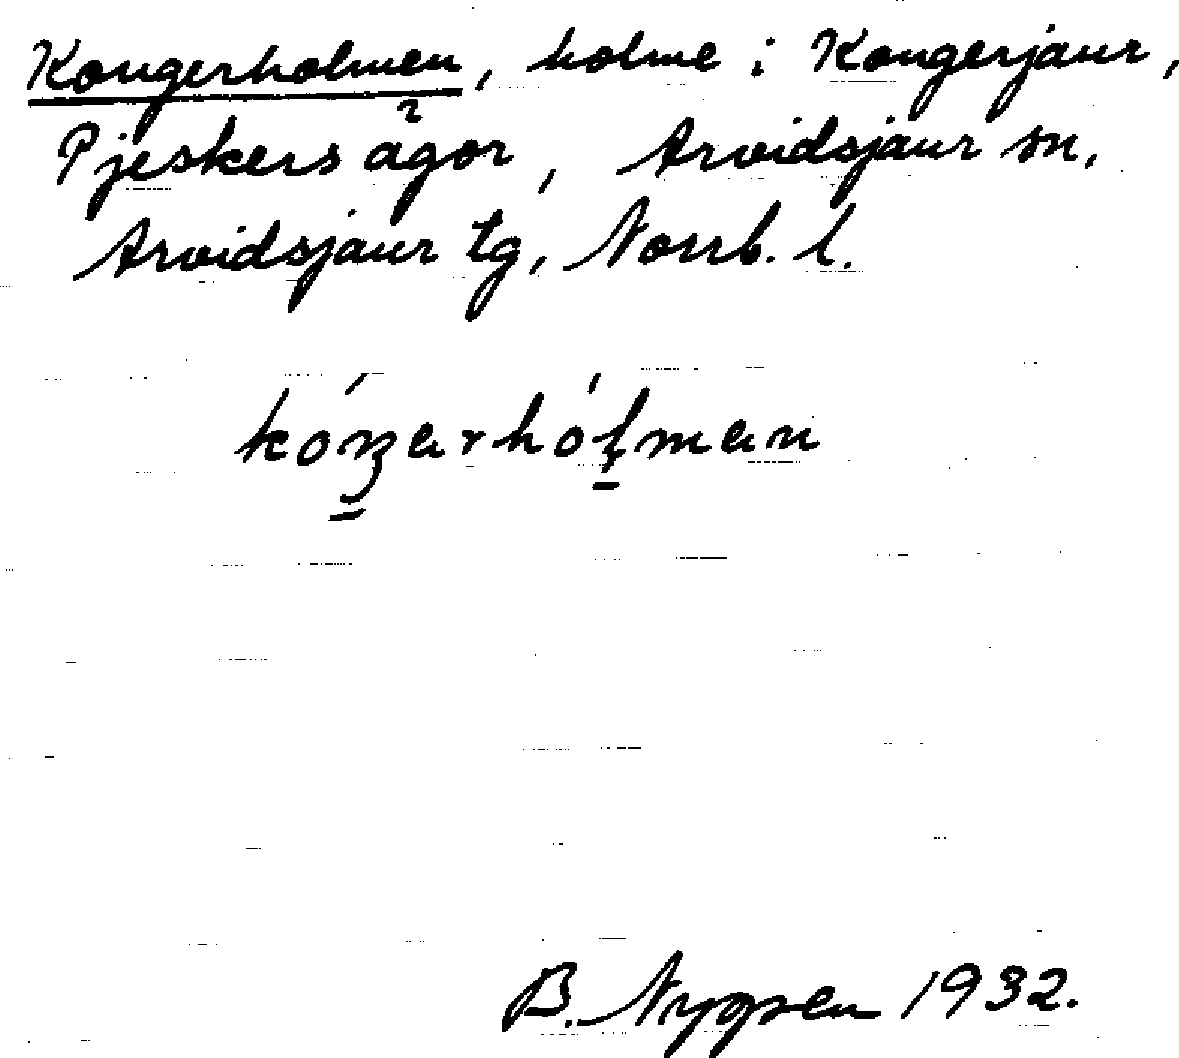 Kougerholmen, holme i Kougerjaur,
Pjeskers ågor, Arvidsjaur sn,
Arvidsjaur tg, Norrb. l.
B. Nygren 1932.